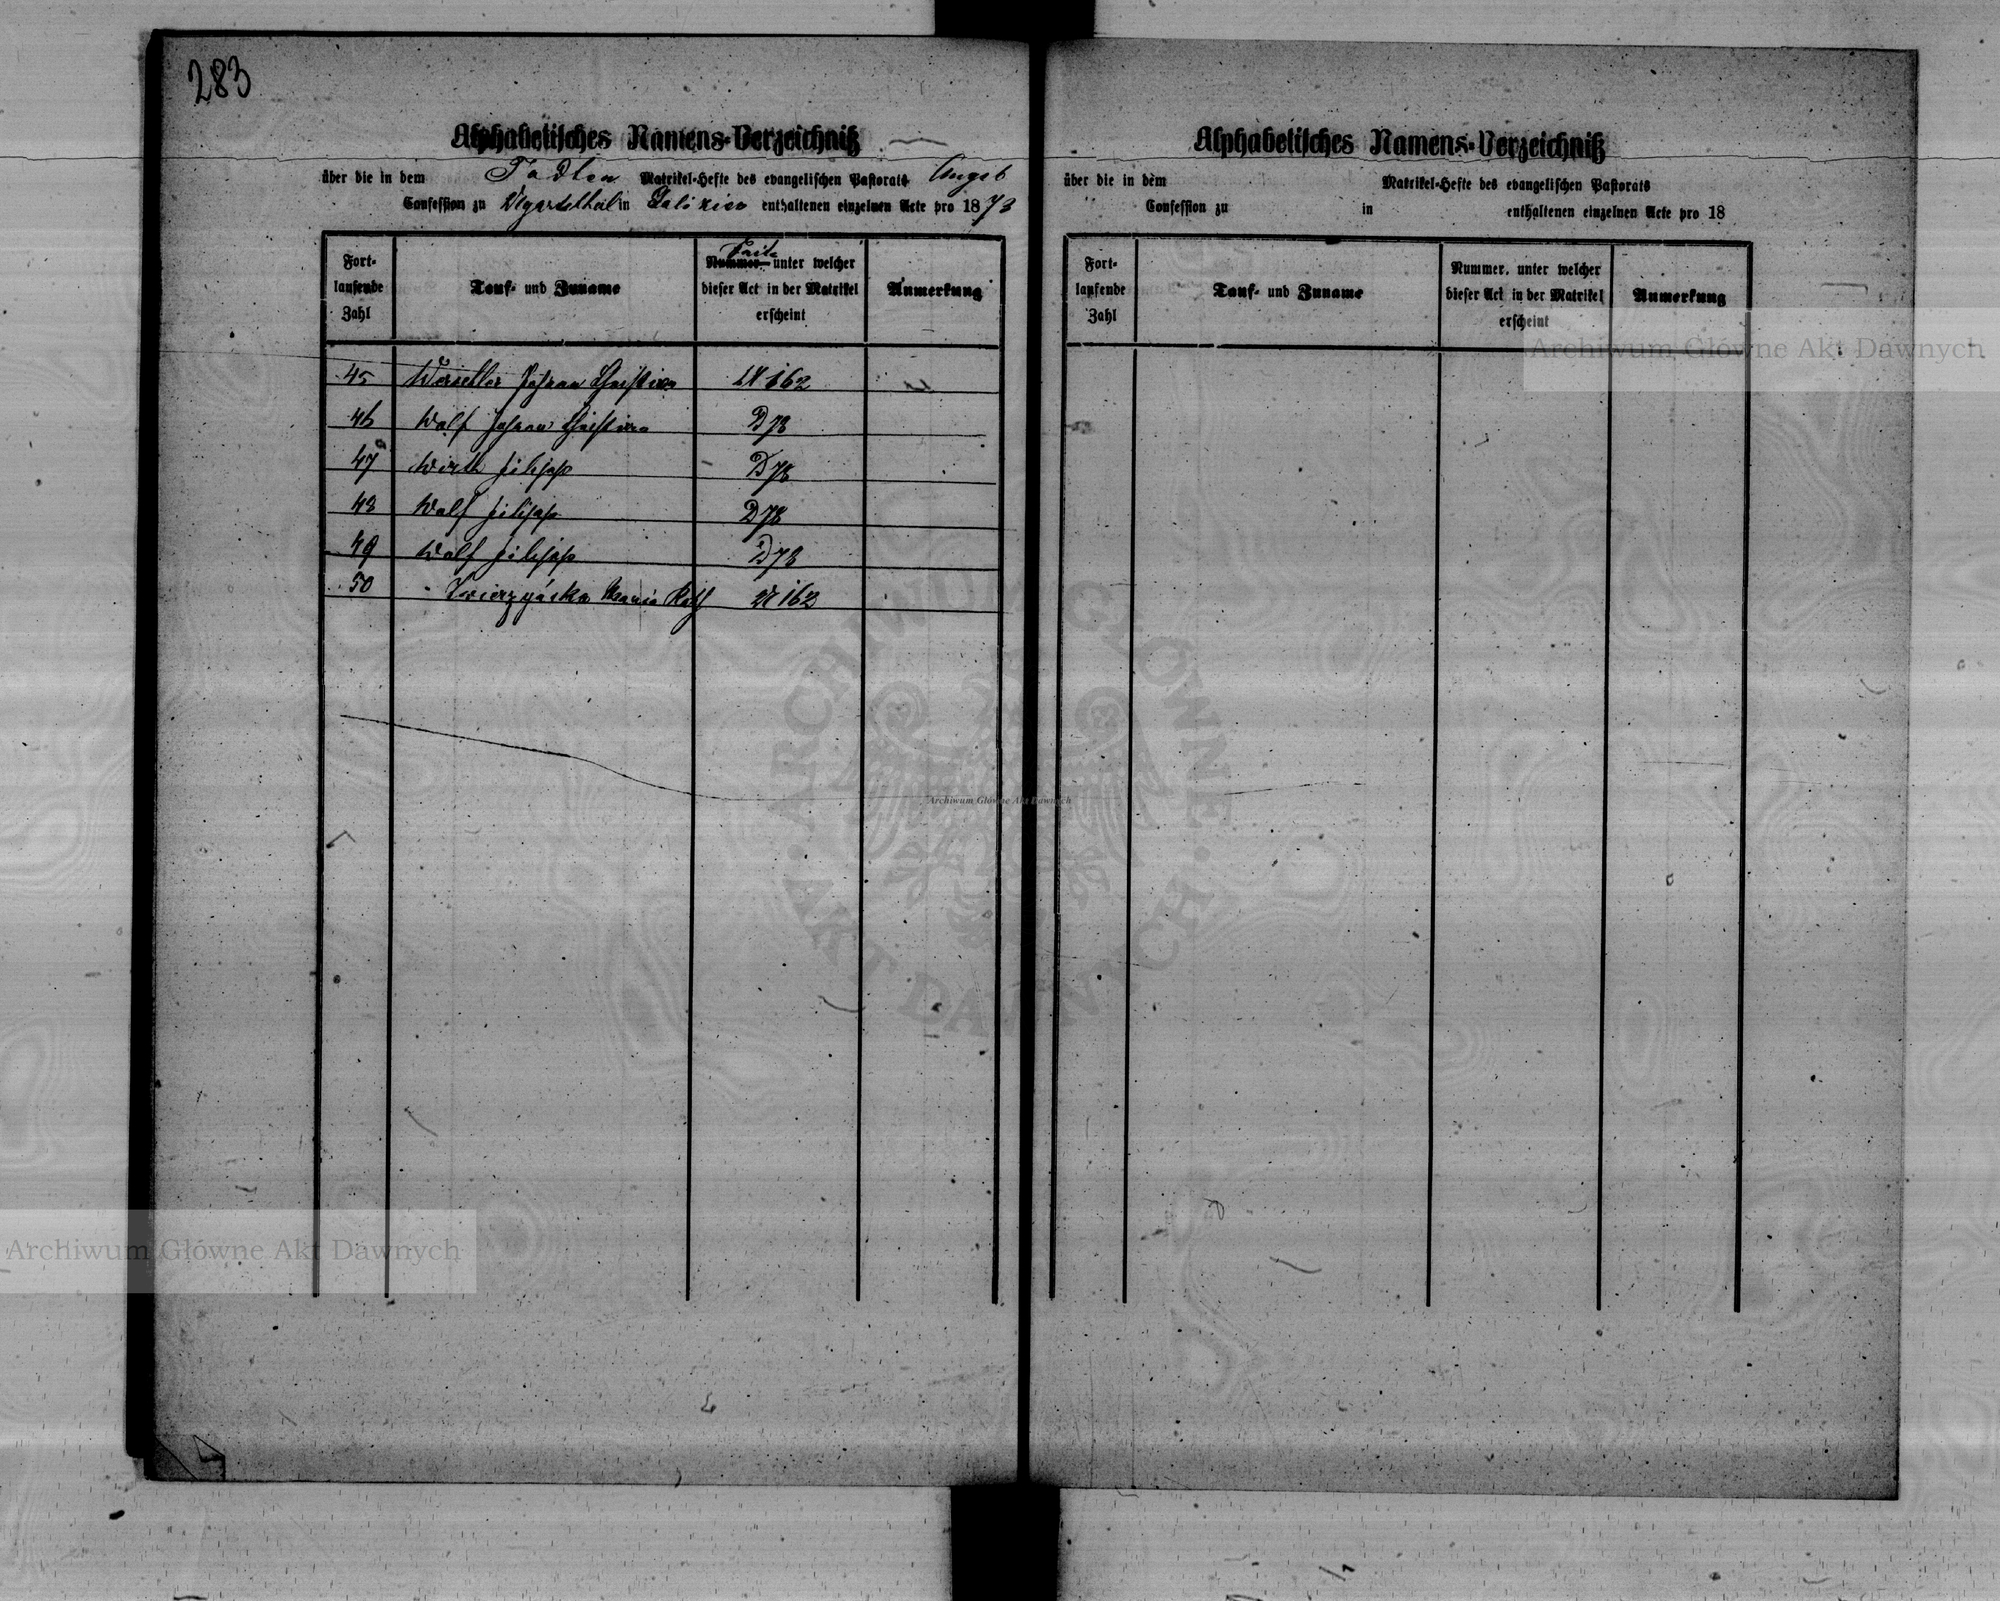 283
Alphabetisches Namens-Verzeichniß
über die in dem Matrikel-Hefte des evangelischen Pastorats Augsb
Confession zu in Galizien enthaltenen einzelnen Acte pro 1873
Fort-
laufende
Zahl
Tauf- und Zuname
Nummer unter welcher
dieser Act in der Matrikel
erscheint
Anmerkung
45 Johann Christian 162
46 Wolf Johann Christian D 78
47 Wirth Filipp D 78
48 Wolf Filipp D 78
49 Wolf Filipp D 78
50 Maria Kath 162
Alphabetisches Namens-Verzeichniß
über die in dem Matrikel-Hefte des evangelischen Pastorats
Confession zu in enthaltenen einzelnen Acte pro 18
Fort-
laufende
Zahl
Tauf- und Zuname
Nummer, unter welcher
dieser Act in der Matrikel
erscheint
Anmerkung
Archiwum Główne Akt Dawnych
ARCHIWUM GŁÓWNE
AKT DAWNYCH
Archiwum Główne Akt Dawnych
Archiwum Główne Akt Dawnych